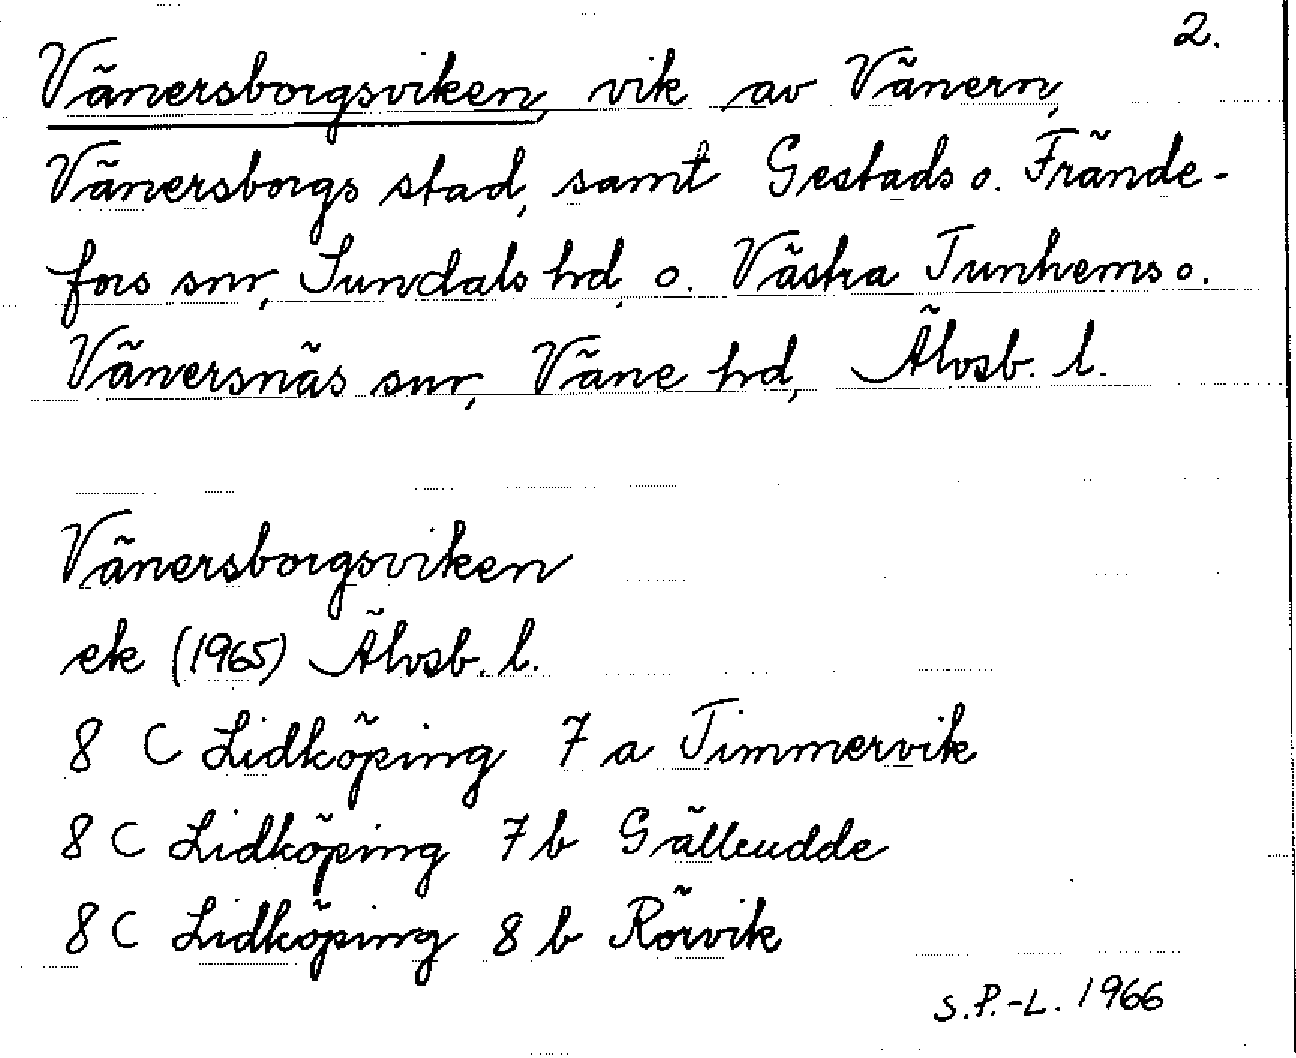 2.
Vänersborgsviken, vik av Vänern,
Vänersborgs stad, samt Gestads o. Frände-
fors snr, Sundals hd, o. Västra Tunhems o.
Vänersnäs snr, Väne hd, Älvsb. l.
Vänersborgsviken
ek (1965) Älvsb. l.
8 C Lidköping 7 a Timmervik
8 C Lidköping 7 b Gälleudde
8 C Lidköping 8 b Rörvik
S.P.-L. 1966